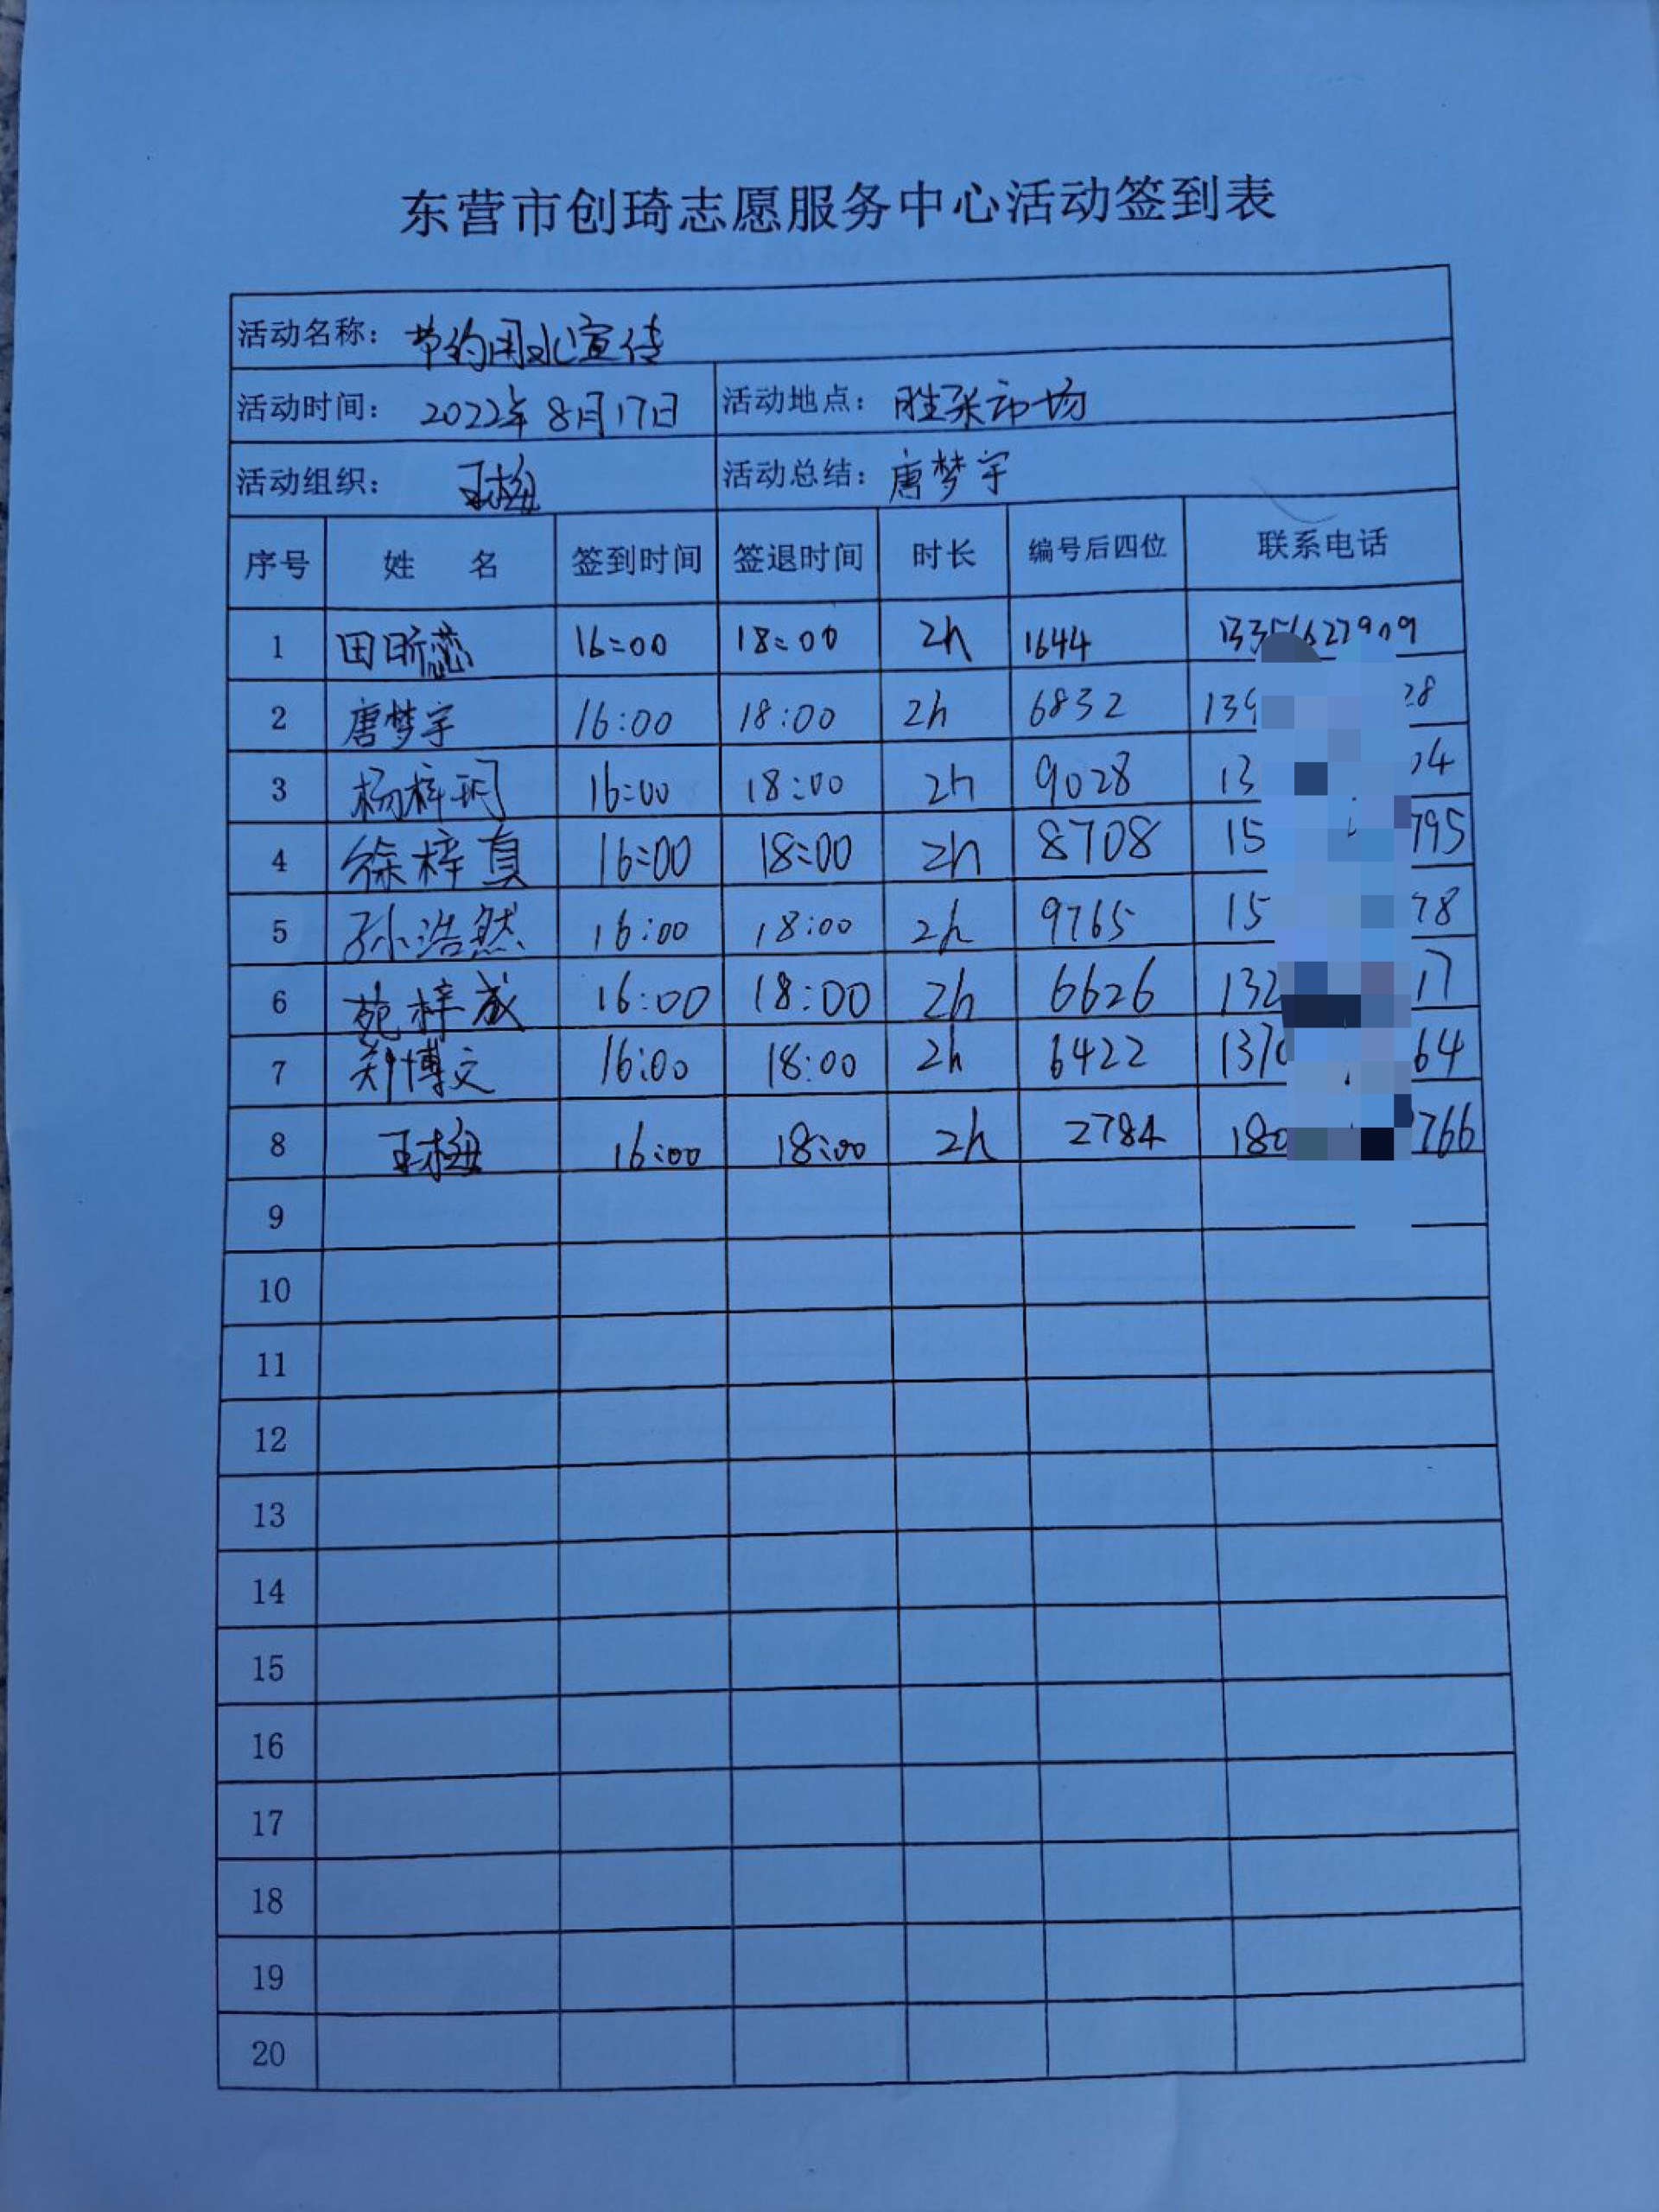 东营市创琦志愿服务中心活动签到表
活动名称： 节约用水宣传
活动时间： 2022年8月17日 活动地点： 胜采市场
活动组织： 王梅 活动总结： 唐梦宇
序号 姓 名 签到时间 签退时间 时长 编号后四位 联系电话
1 田昕蕊 16:00 18:00 2h 1644
2 唐梦宇 16:00 18:00 2h 6832 139 28
3 杨梓玥 16:00 18:00 2h 9028 13 04
4 徐梓真 16:00 18:00 2h 8708 15 795
5 孙浩然 16:00 18:00 2h 9765 15 78
6 苑梓成 16:00 18:00 2h 6626 132 17
7 郑博文 16:00 18:00 2h 6422 137 64
8 王梅 16:00 18:00 2h 2784 180 766
9
10
11
12
13
14
15
16
17
18
19
20